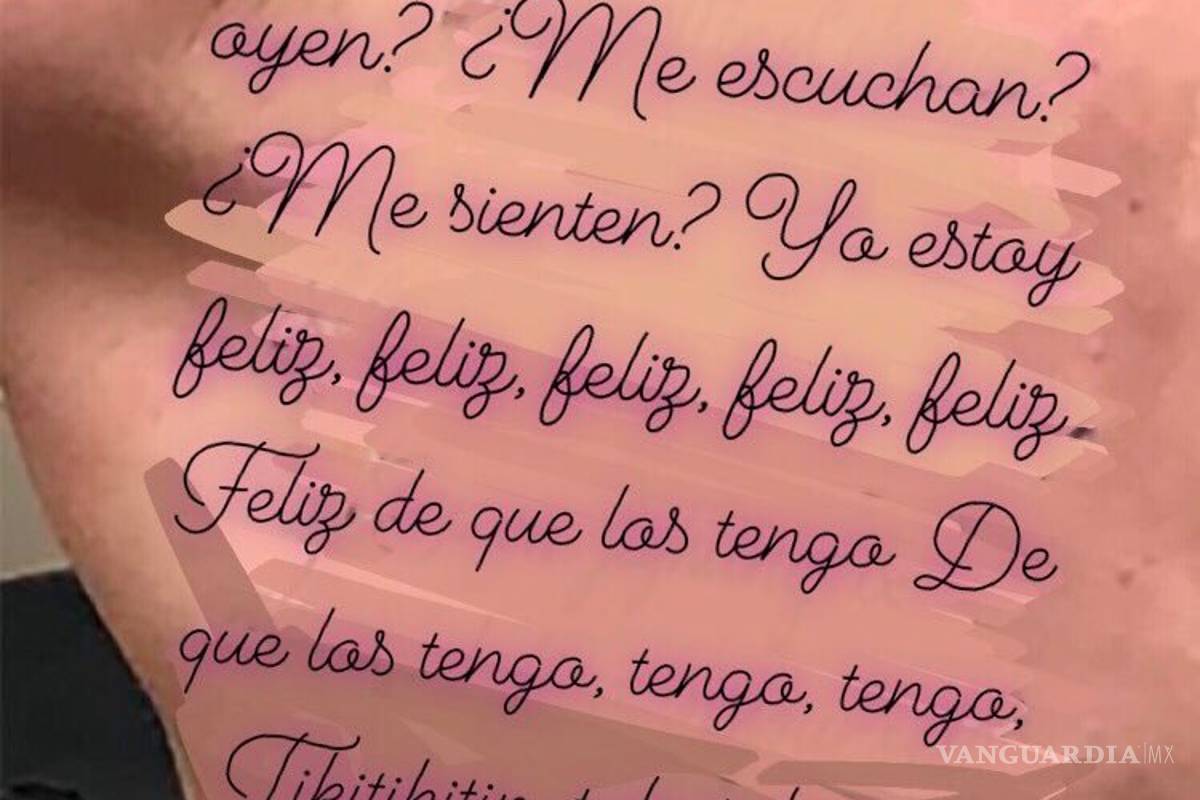 oyen? ¿Me escuchan?
¿Me sienten? Yo estoy
feliz, feliz, feliz, feliz, feliz,
Feliz de que los tengo De
que los tengo, tengo, tengo,
VANGUARDIA|MX